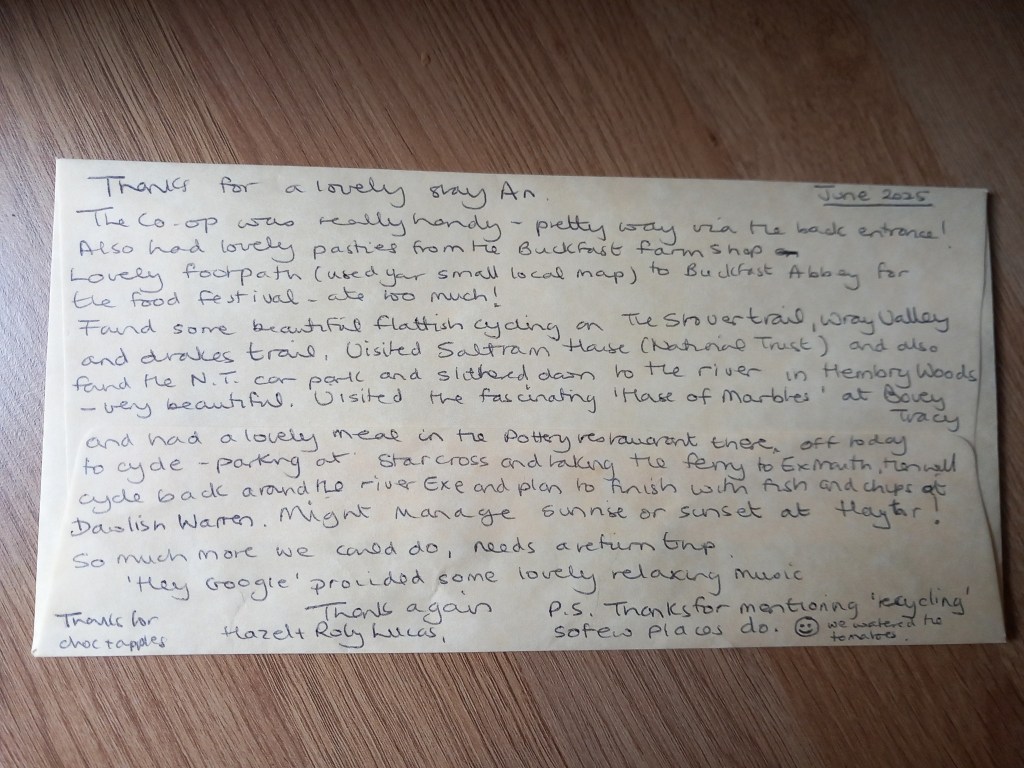 Thanks for a lovely stay An.
June 2025
The Co-op was really handy - pretty way via the back entrance!
Also had lovely pasties from the Buckfast farm shop
Lovely footpath (used your small local map) to Buckfast Abbey for
the food festival - ate too much!
Found some beautiful flattish cycling on The Stover trail, Wray Valley
and drakes trail. Visited Saltram House (National Trust) and also
found the N.T. car park and slithered down to the river in Hembury Woods
- very beautiful. Visited the fascinating 'House of Marbles' at Bovey
Tracy
and had a lovely meal in the Pottery restaurant there, off today
to cycle - parking at Starcross and taking the ferry to Exmouth, then will
cycle back around the river Exe and plan to finish with fish and chips at
Dawlish Warren. Might manage sunrise or sunset at Haytor!
So much more we could do, needs a return trip.
'Hey Google' provided some lovely relaxing music
Thanks again
Hazel + Roly Lucas.
Thanks for
choc + apples
P.S. Thanks for mentioning 'recycling'
so few places do. ☺ we watered the
tomatoes.